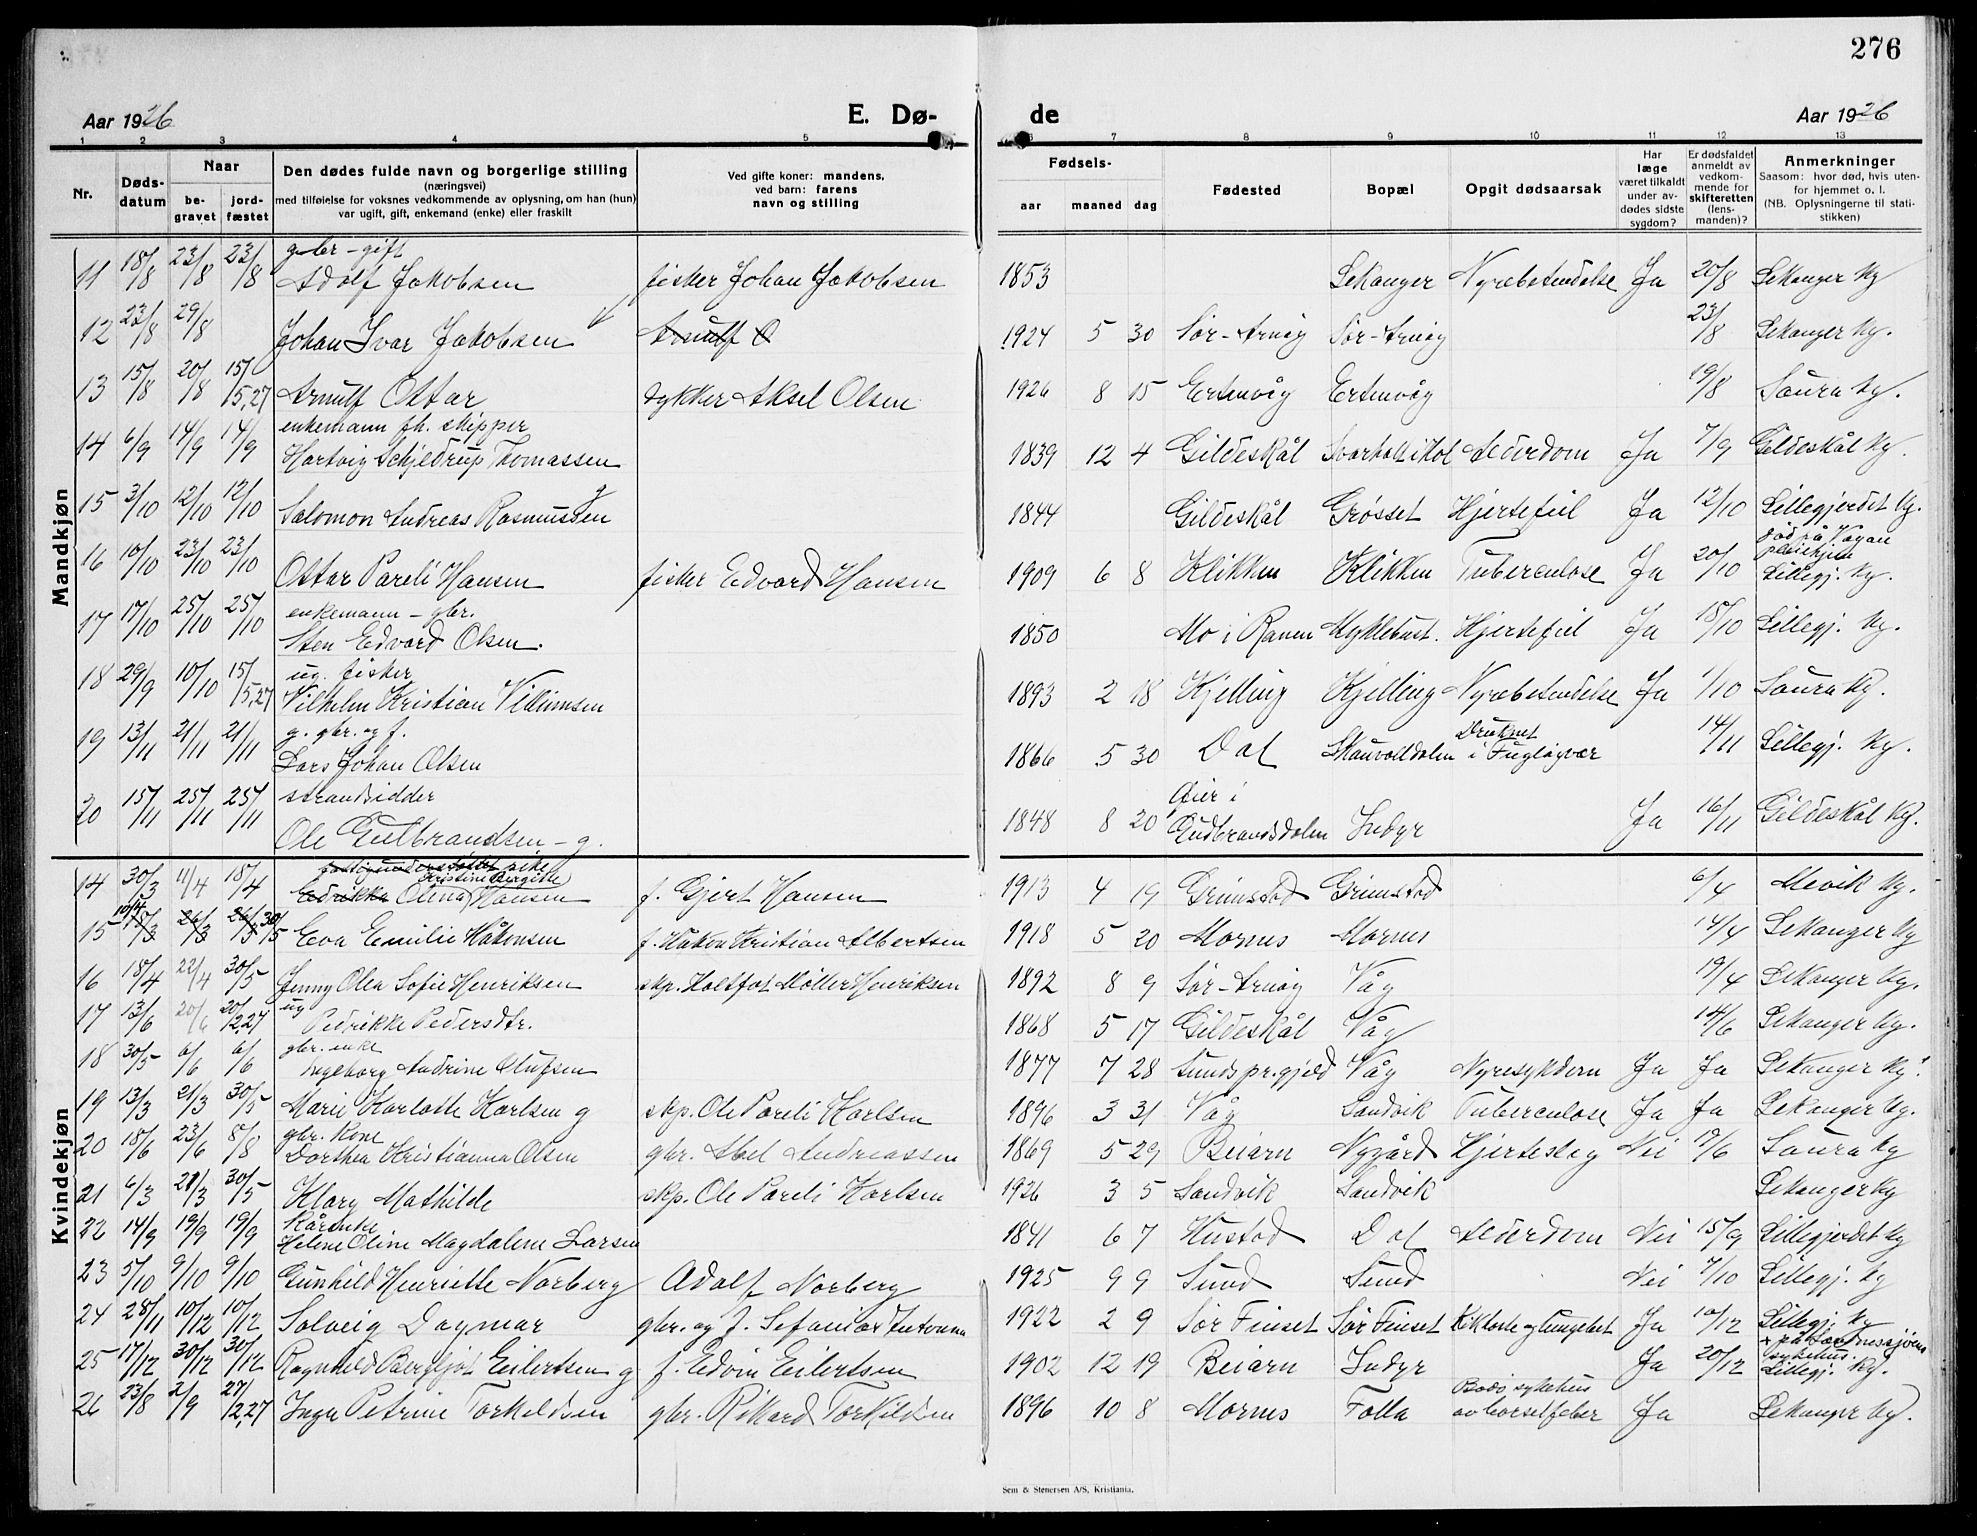 276
Aar 1926 E. Dø- de Aar 1926
1 2 3 4 5 6 7 8 9 10 11 12 13
Nr. Døds-datum Naar be-gravet jord-fæstet
Den dødes fulde navn og borgerlige stilling
(næringsvei)
med tilføielse for voksnes vedkommende av oplysning, om han (hun)
var ugift, gift, enkemand (enke) eller fraskilt
Ved gifte koner: mandens,
ved barn: farens
navn og stilling
Fødsels-
aar maaned dag
Fødested Bopæl Opgit dødsaarsak
Har læge været tilkaldt under av-dødes sidste sygdom?
Er dødsfaldet anmeldt av vedkom-mende for skifteretten (lens-manden)?
Anmerkninger
Saasom: hvor død, hvis uten-
for hjemmet o. l.
(NB. Oplysningerne til stati-
stikken)
Mandkjøn
gbr - gift
11 18/8 23/8 23/8 Adolf Jakobsen fisker Johan Jakobsen 1853 Sekanger Nyrebetendelse Ja 20/8 Sekanger kg
12 23/8 29/8 Johan Ivar Jakobsen Arnulf O 1924 5 30 Sør-Arnøy Sør-Arnøy 23/8 Sekanger kg.
13 15/8 20/8 15/5.27 Arnulf Ottar dykker Aksel Olsen 1926 8 15 Ertenvåg Ertenvåg 19/8 Saura kg.
enkemann fh. skipper
14 6/9 14/9 14/9 Hartvig Schjeldrup Thomassen 1839 12 4 Gildeskål Svartholtikol Alderdom Ja 7/9 Gildeskål kg.
15 3/10 12/10 12/10 Salomon Andreas Rasmussen g 1844 Gildeskål Grøsset Hjertefeil Ja 12/10 Lillegjerdet kg.
død på Vågan
pleiehjem
16 10/10 23/10 23/10 Ottar Pareli Hansen fisker Edvard Hansen 1909 6 8 Klikken Klikken Tuberculose Ja 20/10 Lillegj. kg.
enkemann - gbr.
17 17/10 25/10 25/10 Sten Edvard Olsen. 1850 Mo i Ranen Myklebust. Hjertefeil Ja 18/10 Lillegj. kg.
ug. fisker
18 29/9 10/10 15/5.27 Vilhelm Kristian Villumsen 1893 2 18 Kjelling Kjelling Nyrebetendelse Ja 1/10 Saura kg.
g. gbr. og f.
19 13/11 21/11 21/11 Lars Johan Olsen 1866 5 30 Dal Skauvolldalen Druknet i Fugløyvær 14/11 Lillegj. kg.
strandsidder
20 15/11 25/11 25/11 Ole Gulbrandsen - g. 1848 8 20 Øier i Gudbrandsdalen Inndyr Ja 16/11 Gildeskål kg.
Kvindekjøn
fattigunderstøttet enke
Kristine Birgitte
14 30/3 11/4 18/4 Edrikke Olina Hansen f. Gjert Hansen 1913 4 19 Grimstad Grimstad 6/4 Mevik kg.
10/4
15 15/3 26/3 26/3 30/5 Eva Emilie Håkonsen f. Håkon Kristian Albertsen 1918 5 20 Mornes Mornes 14/4 Sekanger kg
16 18/4 22/4 30/5 Jenny Olea Sofie Henriksen skp. Haltfat Møller Henriksen 1892 8 9 Sør-Arnøy Våg 19/4 Sekanger kg.
ug
17 13/6 20/6 20/2.27 Pedrikke Pedersdtr. 1868 5 17 Gildeskål Våg 14/6 Sekanger kg.
gbr. enke
18 30/5 6/6 6/6 Ingeborg Andrine Olufsen 1877 7 28 Sunds pr.gjeld Våg Nyresykdom Ja Ja Sekanger kg.
19 13/3 21/3 30/5 Marie Karlotte Karlsen g skp. Ole Pareli Karlsen 1896 3 31 Våg Sandvik Tuberculose Ja Ja Sekanger kg.
gbr. kone
20 18/6 23/6 8/8 Dorthea Kristianna Olsen gbr. Abel Andreassen 1869 5 29 Beiarn Nygård Hjerteslag Nei 19/6 Saura kg
21 6/3 21/3 30/5 Klary Mathilde skp. Ole Pareli Karlsen 1926 3 5 Sandvik Sandvik Sekanger kg
Kårenke
22 14/9 19/9 19/9 Helene Oline Magdalene Larsen 1841 6 7 Hustad Dal Alderdom Nei 15/9 Lillegjerdet kg
23 5/10 9/10 9/10 Gunhild Henriette Norberg Adolf Norberg 1925 9 9 Sund Sund Nei 7/10 Lillegj. kg
24 28/11 10/12 10/12 Solveig Dagmar gbr. og f. Sefanias Antonna 1922 2 9 Sør Finset Sør Finset Kikhoste og lungebet Ja 10/12 Lillegj. kg
+ på Sandnessjøen
sykehus.
25 17/12 30/12 30/12 Ragnhild Bergljot Eilertsen g f. Edvin Eilertsen 1902 12 19 Beiarn Inndyr Ja 20/12 Lillegj. kg.
26 23/8 2/9 27/2.27 Inga Petrine Torkildsen gbr. Rikard Torkildsen 1896 10 8 Mornes Følla Bodø sykehus av barselfeber Ja Sekanger kg.
Sem & Stenersen A/S, Kristiania.